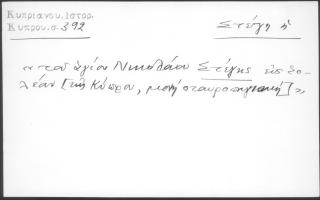 Κυπριανου. Ιστορ.
Κυπρου. σ. 392
Στέγη ἡ
« του ἁγίου Νικολάου Στέγης εἰς Σο-
λέαν [τῆς Κύπρου, μονή σταυροπηγιακή] »